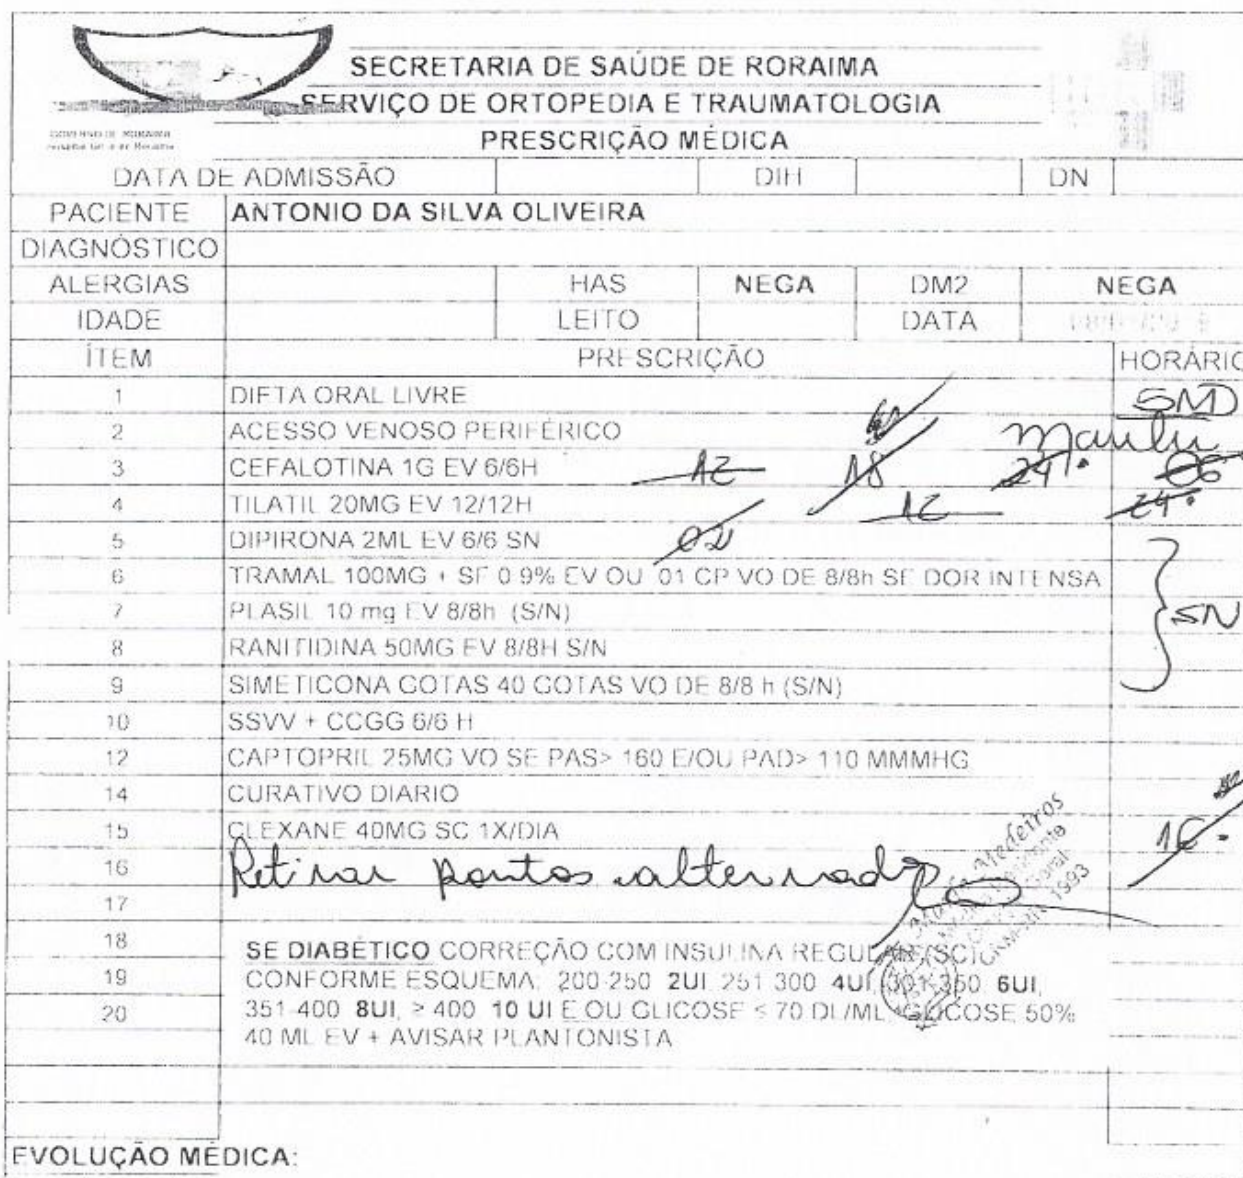 SECRETARIA DE SAÚDE DE RORAIMA
SERVIÇO DE ORTOPEDIA E TRAUMATOLOGIA
GOVERNO DE RORAIMA
PRESCRIÇÃO MÉDICA
DATA DE ADMISSÃO DIH DN
PACIENTE ANTONIO DA SILVA OLIVEIRA
DIAGNÓSTICO
ALERGIAS HAS NEGA DM2 NEGA
IDADE LEITO DATA
ÍTEM PRESCRIÇÃO HORÁRIO
1 DIETA ORAL LIVRE SND
2 ACESSO VENOSO PERIFÉRICO
3 CEFALOTINA 1G EV 6/6H 12 18 24 06
4 TILATIL 20MG EV 12/12H 12 24
5 DIPIRONA 2ML EV 6/6 SN 02
6 TRAMAL 100MG + SF 0.9% EV OU 01 CP VO DE 8/8h SE DOR INTENSA
7 PLASIL 10 mg EV 8/8h (S/N) SN
8 RANITIDINA 50MG EV 8/8H S/N
9 SIMETICONA GOTAS 40 GOTAS VO DE 8/8 h (S/N)
10 SSVV + CCGG 6/6 H
12 CAPTOPRIL 25MG VO SE PAS> 160 E/OU PAD> 110 MMMHG
14 CURATIVO DIARIO
15 CLEXANE 40MG SC 1X/DIA 16
16 Retirar pontos alternados
17
18 SE DIABÉTICO CORREÇÃO COM INSULINA REGULAR (SC)
19 CONFORME ESQUEMA: 200-250 2UI, 251-300 4UI, 301-350 6UI,
20 351-400 8UI, ≥ 400 10 UI E OU GLICOSE ≤ 70 DL/ML, GLICOSE 50%
40 ML EV + AVISAR PLANTONISTA
EVOLUÇÃO MÉDICA: